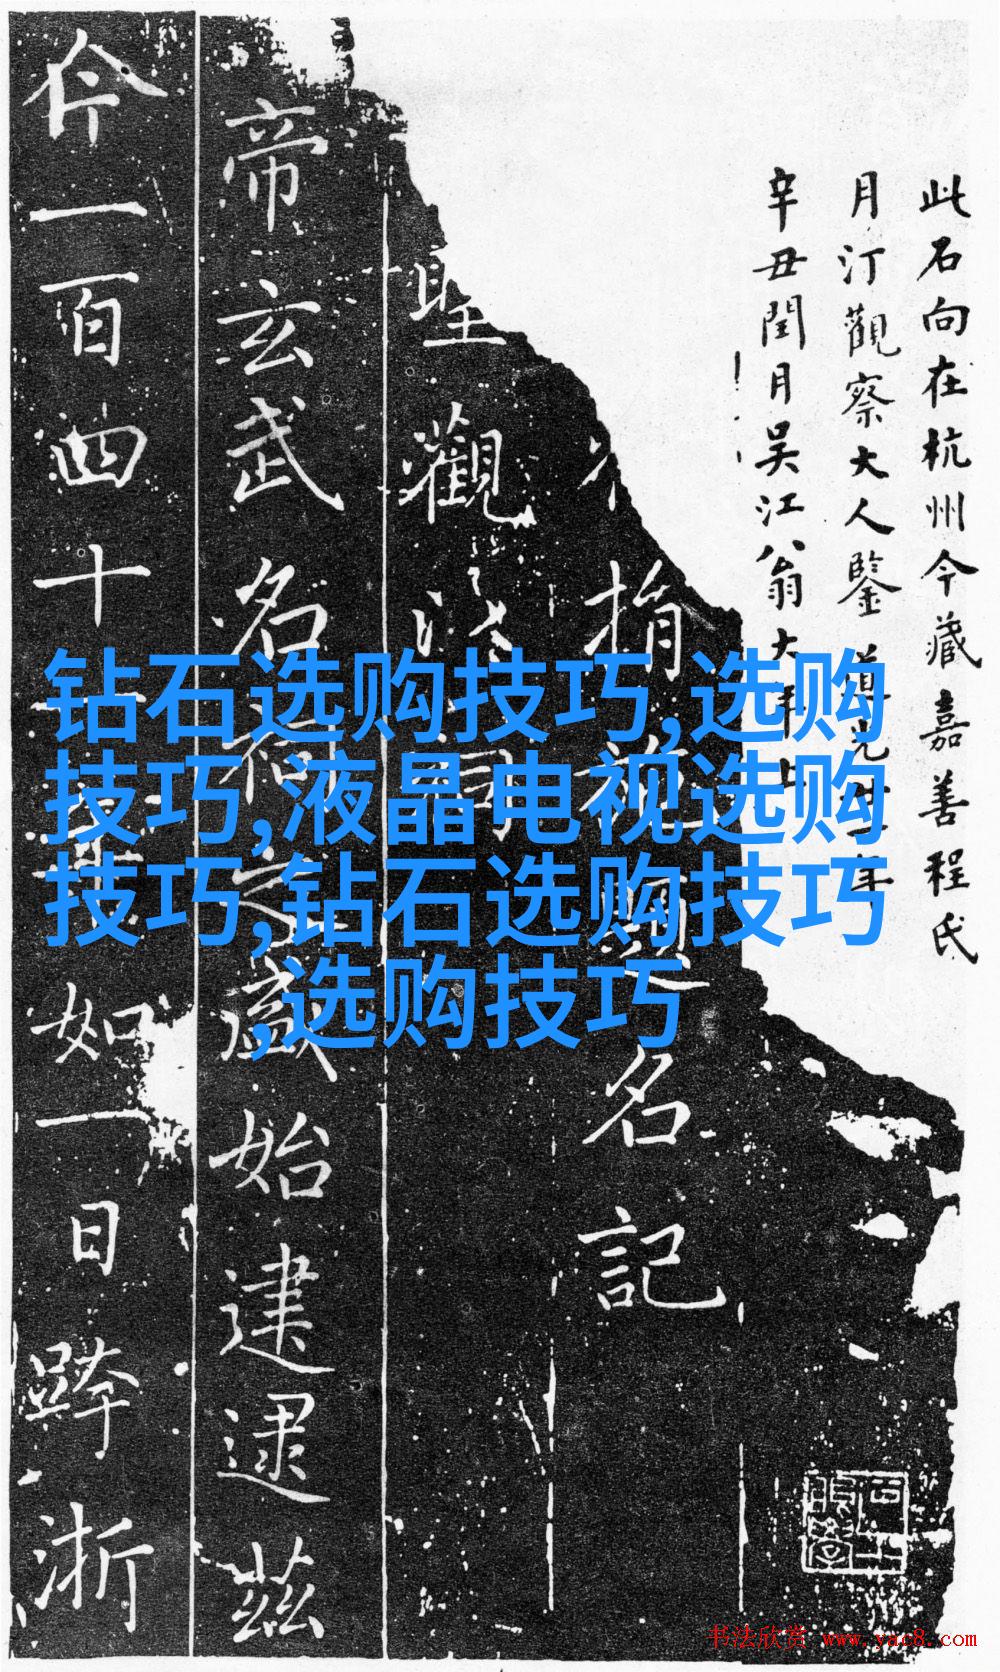 此石向在杭州今藏嘉善程氏
月汀觀察大人鑒道光年
辛丑閏月吳江翁大年上
捐題名記
聖觀
帝玄武名稱之盛始建逮茲
今一百四十如一日跨浙
钻石选购技巧,选购
技巧,液晶电视选购
技巧,钻石选购技巧
,选购技巧
书法欣赏 www.yac8.com